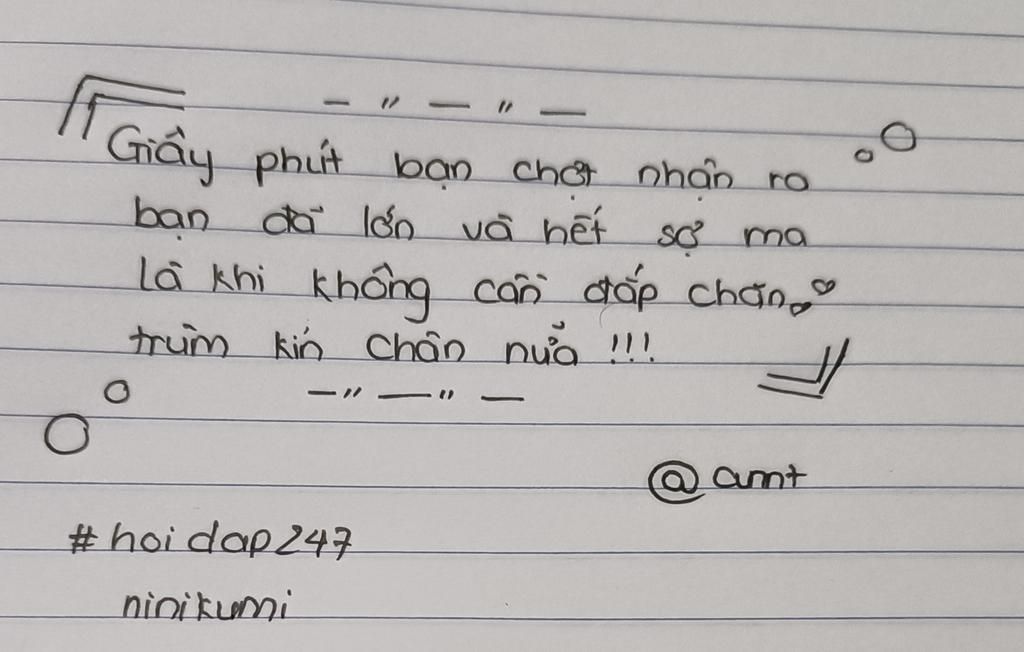 — " — " —
Giây phút bạn chợt nhận ra
bạn đã lớn và hết sợ ma
là khi không cần đắp chăn
trùm kín chân nửa !!!
— " — " —
@amt
#hoidap247
ninikumi